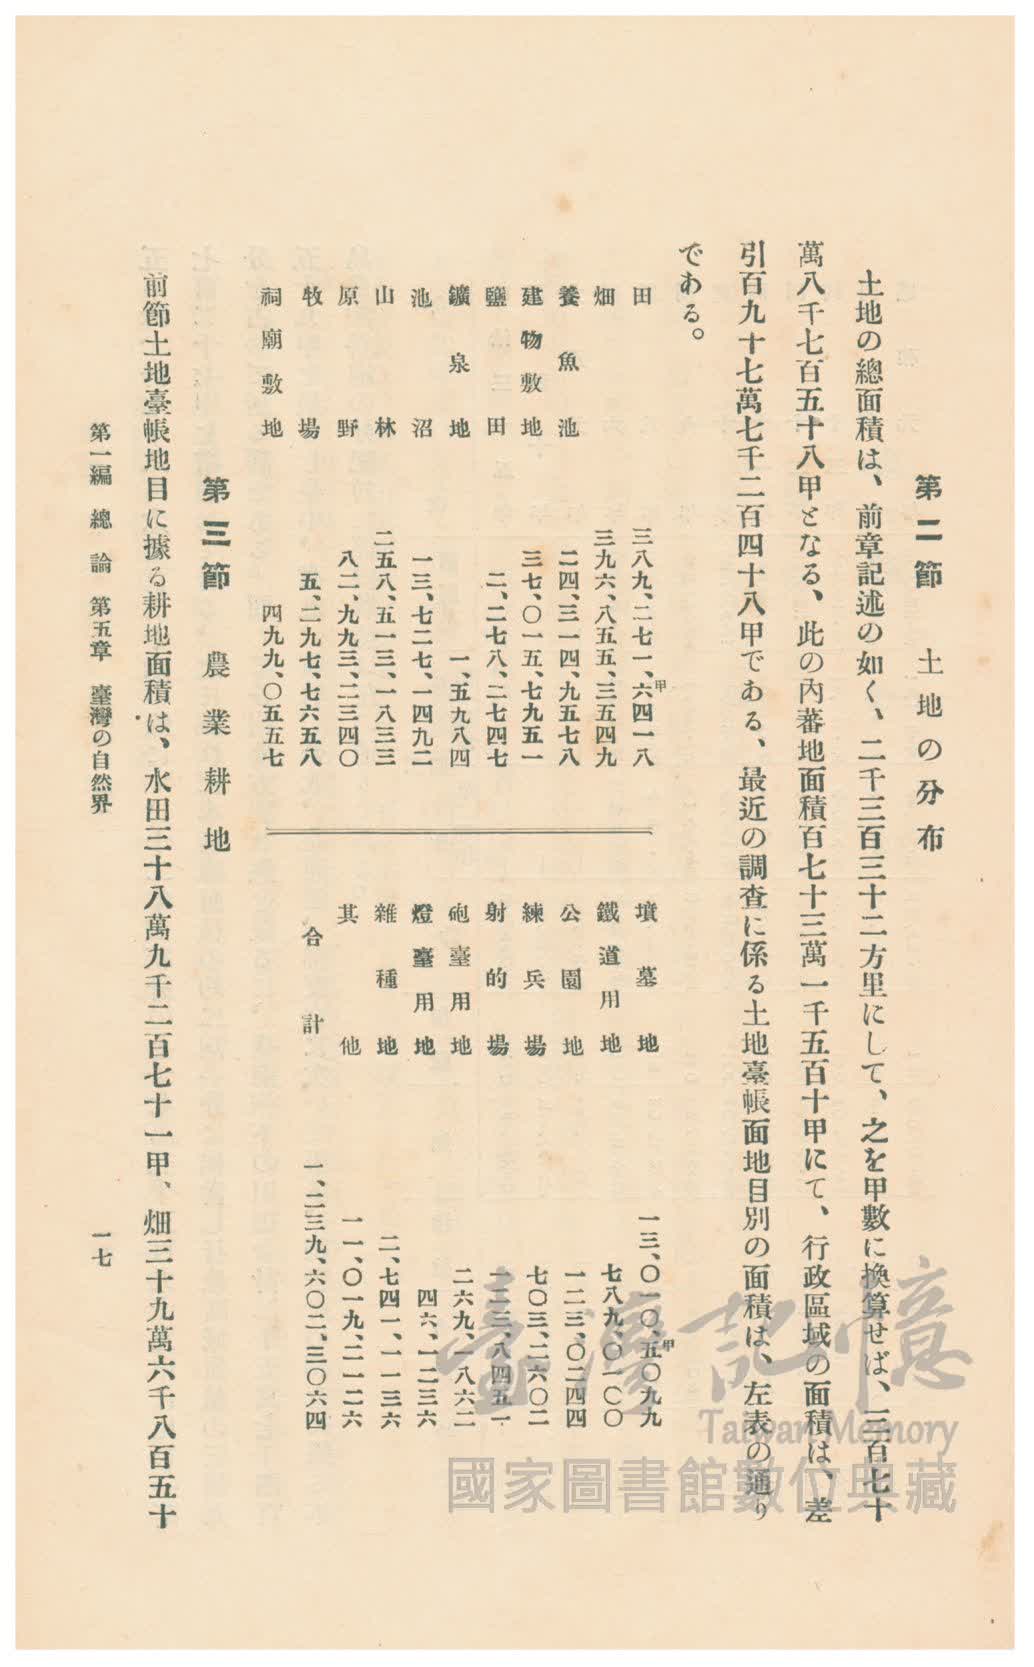 第二節 土地の分布
土地の總面積は、前章記述の如く、二千三百三十二方里にして、之を甲數に換算せば、三百七十
萬八千七百五十八甲となる、此の內蕃地面積百七十三萬一千五百十甲にて、行政區域の面積は、差
引百九十七萬七千二百四十八甲である、最近の調査に係る土地臺帳面地目別の面積は、左表の通り
である。
田 三八九、二七一、六四一八甲
畑 三九六、八五五、三五四九
養魚池 二四、三一四、九五七八
建物敷地 三七、〇一五、七九五一
鹽田 二、二七八、二七四七
鑛泉地 一、五九八四
池沼 一三、七二七、一四九二
山林 二五八、五一三、一八三三
原野 八二、九九三、二三四〇
牧場 五、二九七、七六五八
祠廟敷地 四九九、〇五五七
墳墓地 一三、〇一〇、五〇九九甲
鐵道用地 七八九、〇一〇〇
公園地 一二三、〇二四四
練兵場 七〇三、二六〇二
射的場 一二三、八四五一
砲臺用地 二六九、一八六二
燈臺用地 四六、一二三六
雜種地 二、七四一、一一三六
其他 一一、〇一九、二一二六
合計 一、二三九、六〇二、三〇六四
第三節 農業耕地
前節土地臺帳地目に據る耕地面積は、水田三十八萬九千二百七十一甲、畑三十九萬六千八百五十
第一編 總論 第五章 臺灣の自然界
一七
臺灣記憶
Taiwan Memory
國家圖書館數位典藏